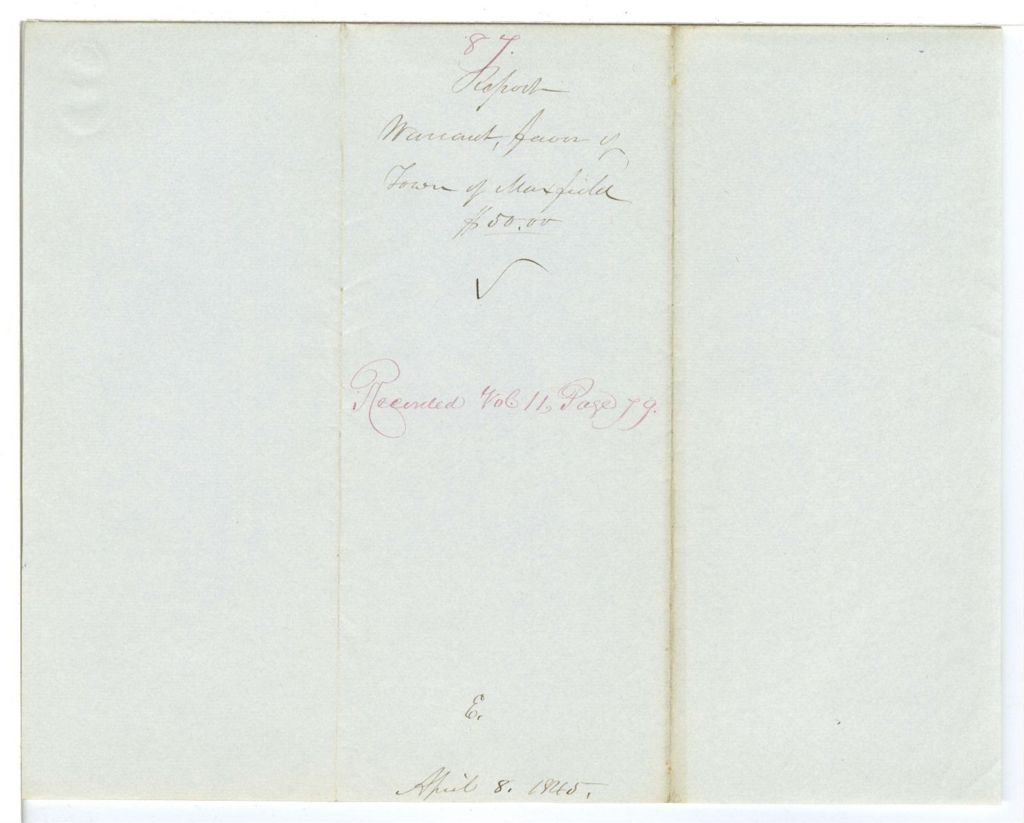 87.
Report
Warrant, favor of
Town of Maxfield
$50.00
Recorded Vol. 11, Page 79.
E.
April 8. 1845.